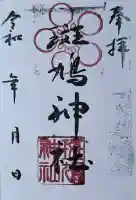 奉拝
斑鳩神社
令和 年 月 日